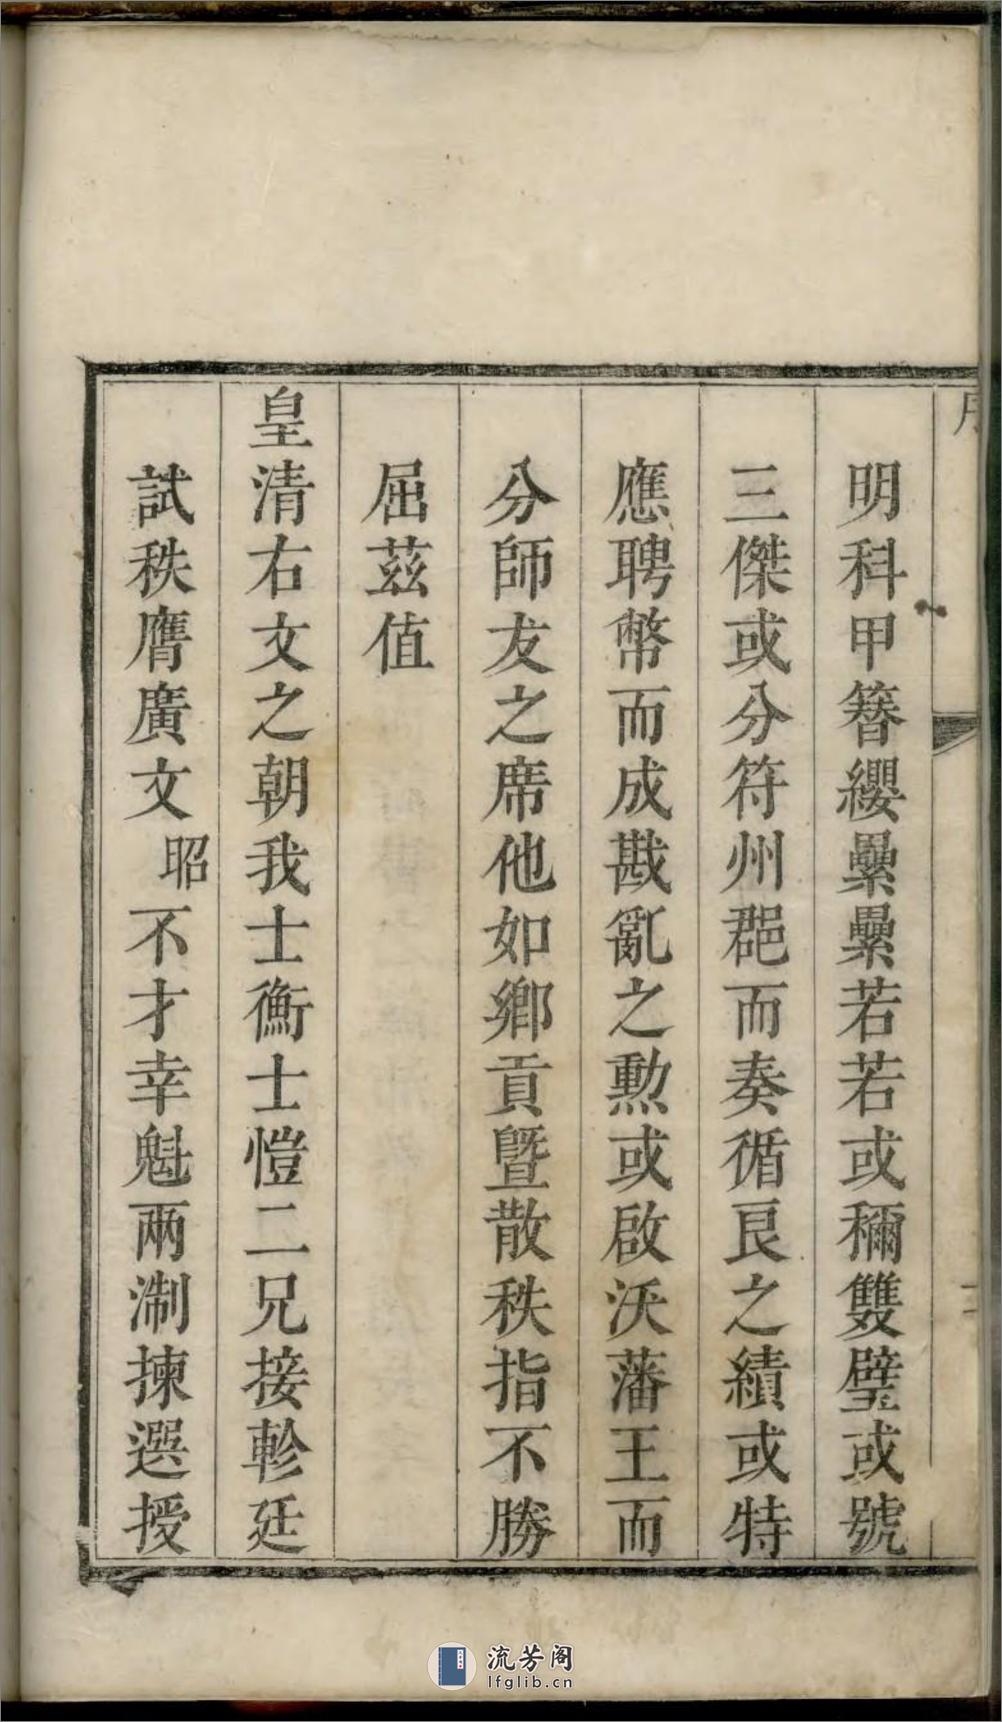 明科甲簪纓纍纍若若或稱雙璧或號
三傑或分符州郡而奏循良之績或特
應聘幣而成戡亂之勲或啟沃藩王而
分師友之席他如鄉貢曁散秩指不勝
屈茲值
皇清右文之朝我士衡士愷二兄接軫廷
試秩膺廣文昭不才幸魁兩淛揀選授
流芳阁
lfglib.cn